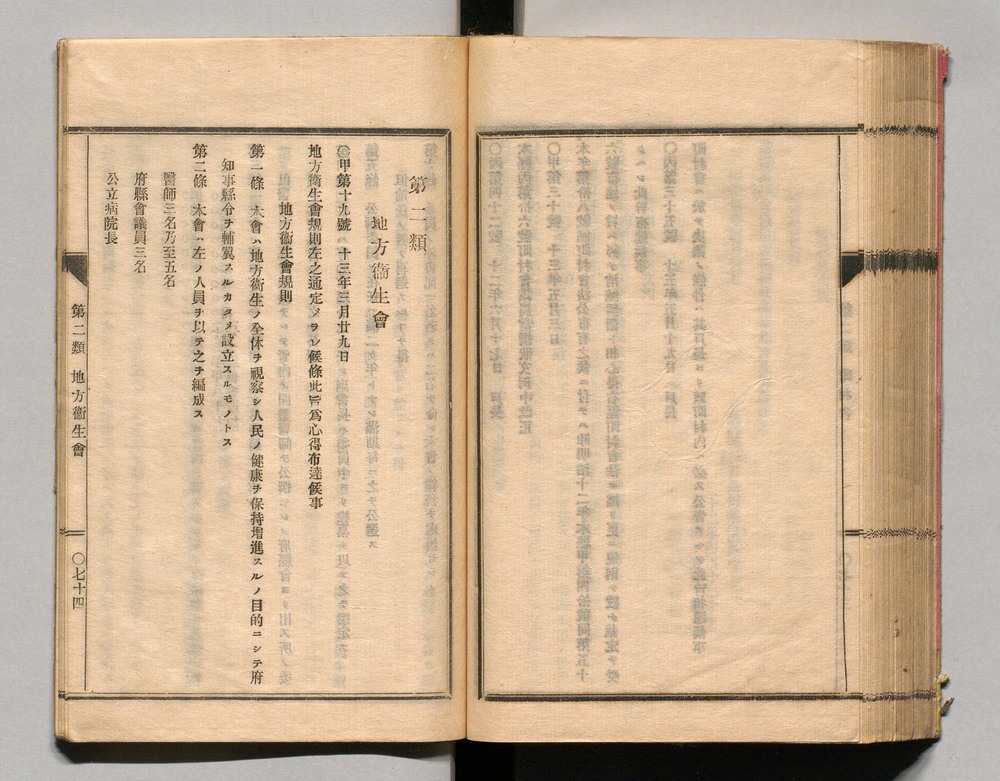 第二類
地方衞生會
◎甲第十九號 十三年三月廿九日
地方衞生會規則左之通定メラレ候條此旨爲心得布達候事
地方衞生會規則
第一條 本會ハ地方衞生ノ全体ヲ視察シ人民ノ健康ヲ保持增進スルノ目的ニシテ府
知事縣令ヲ輔翼スルカタメ設立スルモノトス
第二條 本會ハ左ノ人員ヲ以テ之ヲ編成ス
醫師三名乃至五名
府縣會議員三名
公立病院長
第二類 地方衞生會 〇七十四